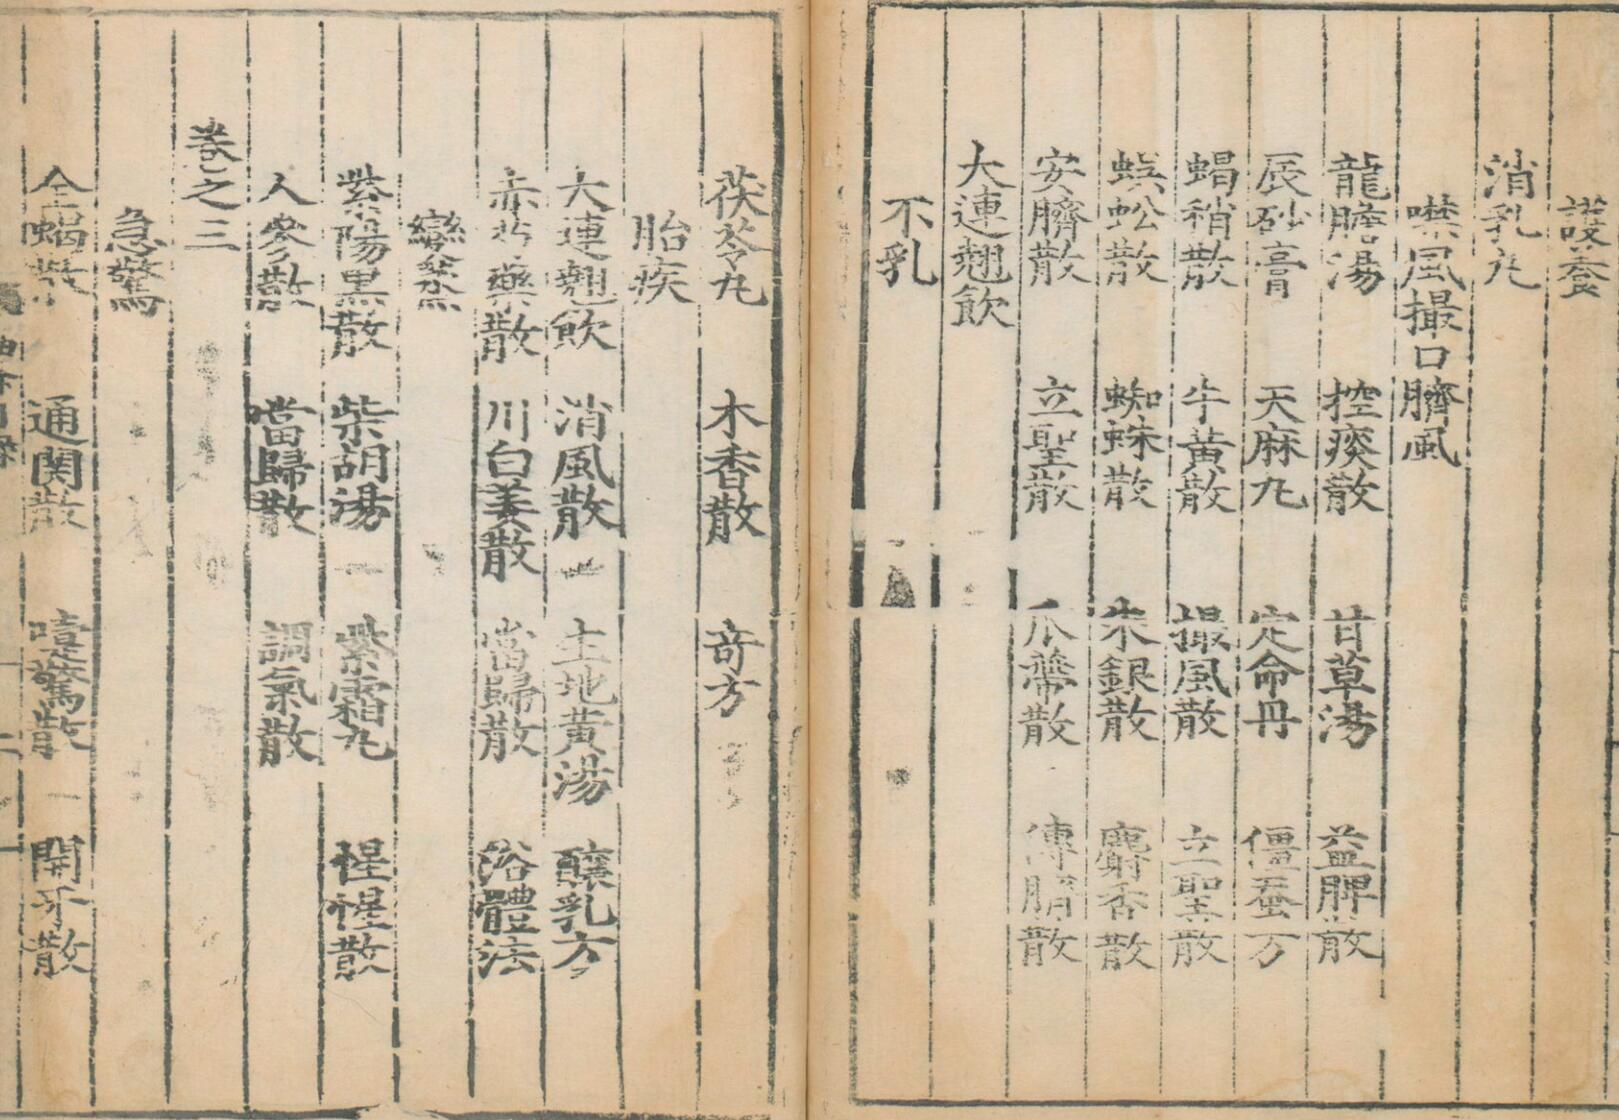 護養
消乳丸
噤風撮口臍風
龍膽湯 控痰散 甘草湯 益脾散
辰砂膏 天麻丸 定命丹 僵蚕方
蝎稍散 牛黃散 撮風散 立聖散
蜈蚣散 蜘蛛散 朱銀散 麝香散
安臍散 立聖散 瓜蔕散 傳臍散
大連翹飲
不乳
茯苓丸 木香散 奇方
胎疾
大連翹飲 消風散 生地黃湯 釀乳方
赤芍藥散 川白姜散 當歸散 浴體法
變蒸
紫陽黒散 柴胡湯 紫霜丸 惺惺散
人參散 當歸散 調氣散
卷之三
急驚
全蝎散 通関散 嚏驚散 開牙散